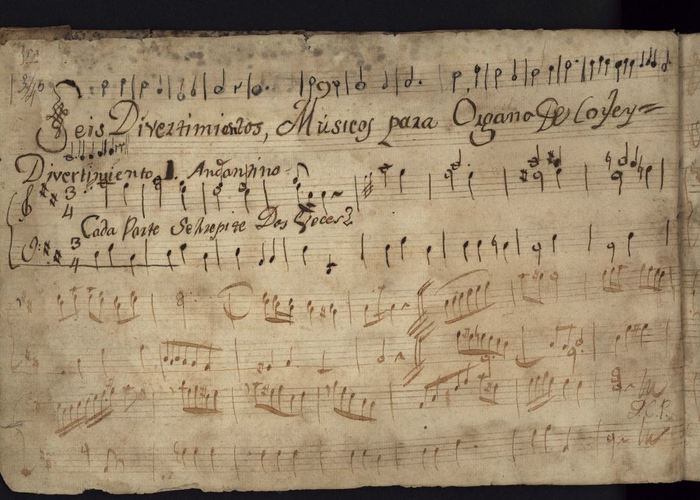 Seis Divertimientos, Músicos para Organo De
Divertimiento 1. Andantino
3
4
Cada Parte Se Repite Dos Veces
3
4
D.C.P.